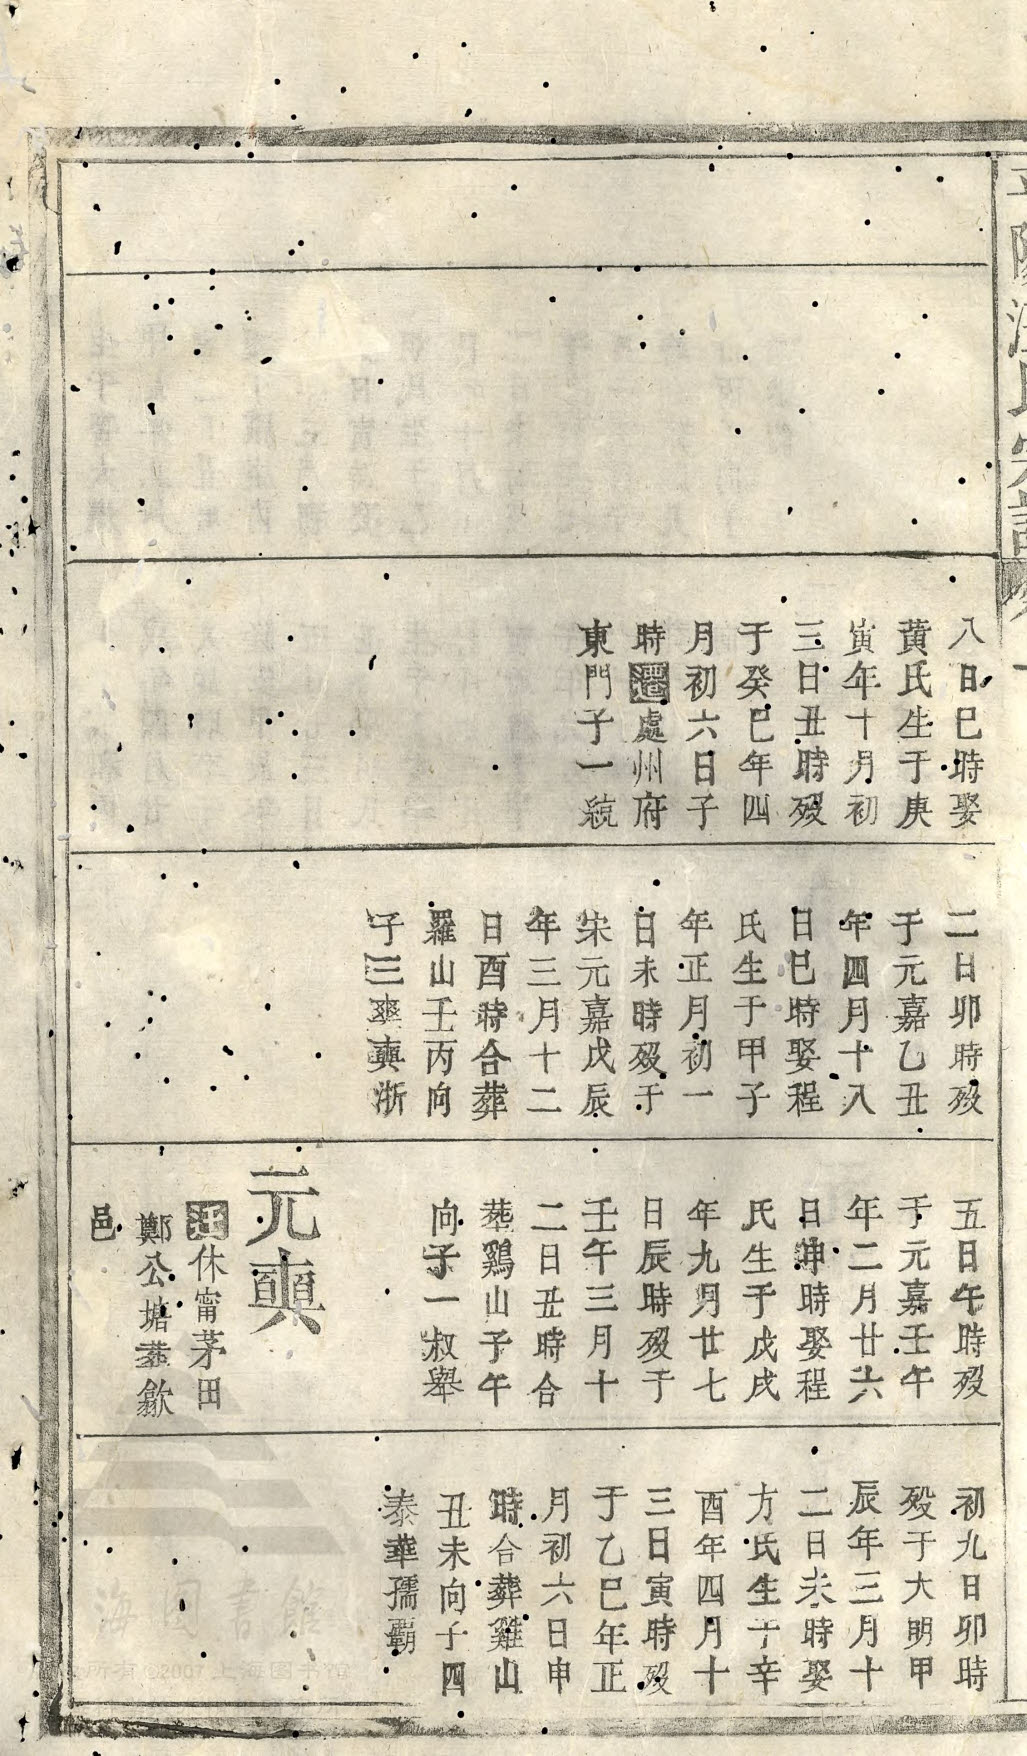 平陽汪氏宗譜
八日巳時娶
黄氏生于庚
寅年十月初
三日丑時殁
于癸巳年四
月初六日子
時遷處州府
東門子一统
二日卯時殁
于元嘉乙丑
年四月十八
日巳時娶程
氏生于甲子
年正月初一
日未時殁于
宋元嘉戊辰
年三月十二
日酉時合葬
羅山壬丙向
子三爽奭浙
五日午時殁
于元嘉壬午
年二月廿六
日申時娶程
氏生于戊戌
年九月廿七
日辰時殁于
壬午三月十
二日丑時合
葬鷄山子午
向子一叔舉
元奭
迁休甯茅田
鄭公塘葬歙
邑
初九日卯時
殁于大明甲
辰年三月十
二日未時娶
方氏生于辛
酉年四月十
三日寅時殁
于乙巳年正
月初六日申
時合葬雞山
丑未向子四
泰華孺霸
上海圖書館
所有©2007上海图书馆